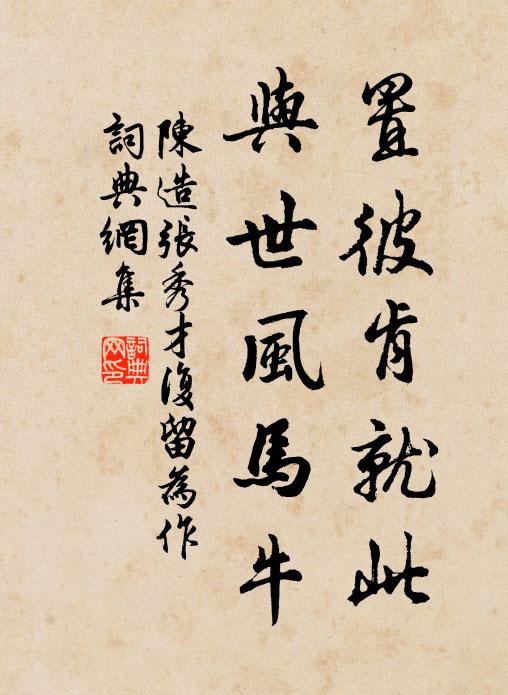 置彼肯就此
與世風馬牛
陳造張秀才復留為作
詞典網集
詞典網印